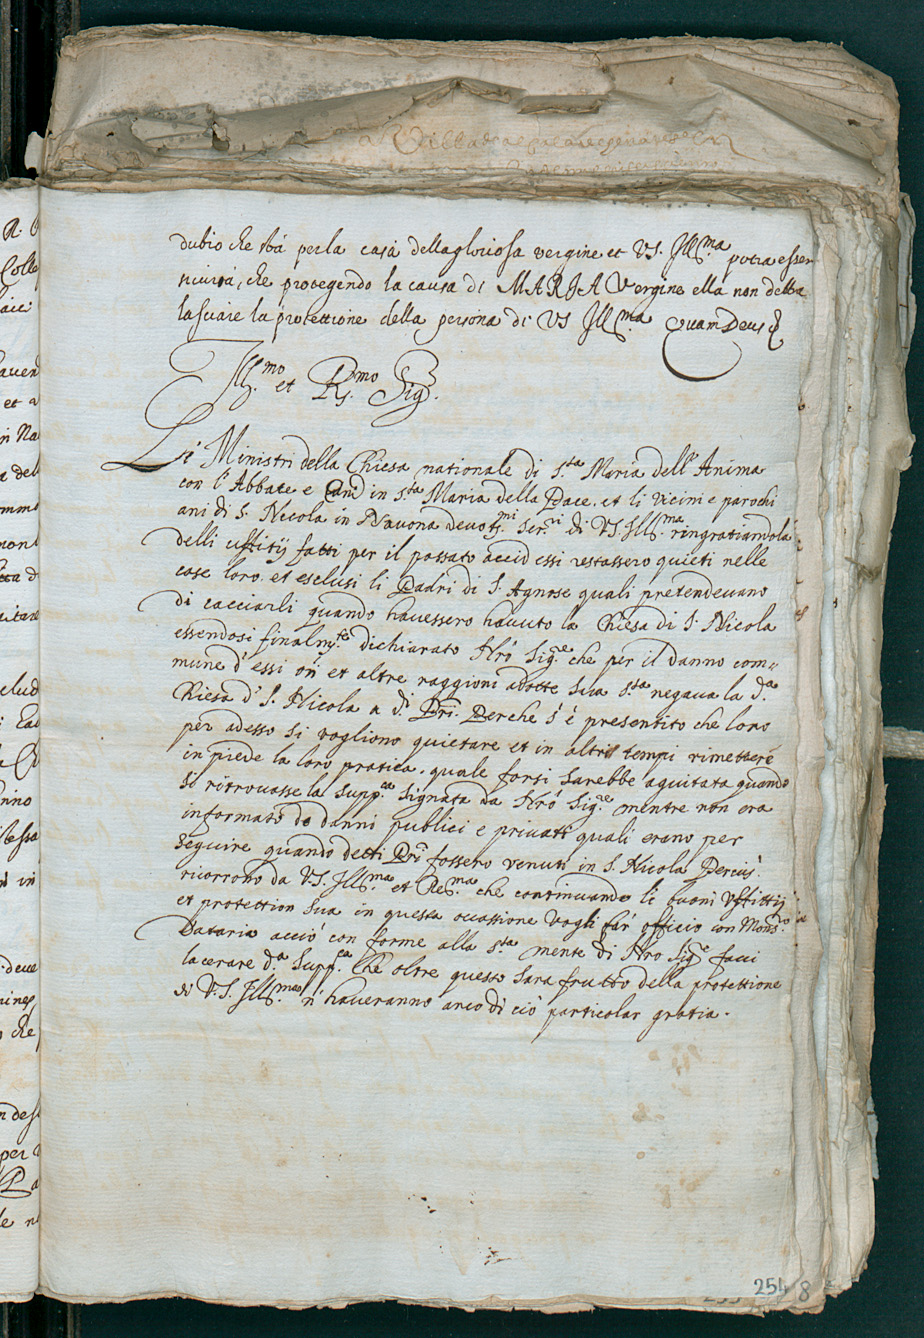 dubio che stà per la casa della gloriosa vergine et VS. Ill.ma potra esser
sicura, che protegendo la causa di MARIA Vergine ella non debba
lasciare la protettione della persona di VS Ill.ma Quam Deus
Ill.mo et R.mo Sig.
Li Ministri della Chiesa nationale di S.ta Maria dell' Anima
con l'Abbate e Can.ci in S.ta Maria della Pace, et li vicini e parochi
ani di S. Nicola in Navona devot.mi Ser.ri di VS Ill.ma ringratiandola
delli uffitij fatti per il passato acciò essi restassero quieti nelle
case loro, et esclusi li Padri di S. Agnese quali pretendevano
di cacciarli quando havessero havuto la Chiesa di S. Nicola
essendosi finalm.te dichiarato Nrō Sig.re che per il danno com-
mune d'essi orī et altre raggioni adotte Sua S.tà negava la d.a
Chiesa di S. Nicola a d.i Prī. Perche s'è presentito che loro
per adesso si vogliono quietare et in altri tempi rimettere
in piede la loro pratica, quale forsi sarebbe aguitata quando
si ritrovasse la supp.ca signata da Nrō Sig.re mentre non era
informato de danni publici e privati quali erano per
seguire quando detti Prī fossero venuti in S. Nicola Perciò
ricorrono da V.S. Ill.ma et Re.ma che continuando li buoni uffittij
et protettion sua in questa occassione vogli far officio con Mons.r
Datario acciò con forme alla S.ta mente di Nro Sig.re facci
lacerare d.a Supp.ca Che oltre questo sara frutto della protettione
di V.S. Ill.ma n' haveranno anco di ciò particolar gratia.
254
8